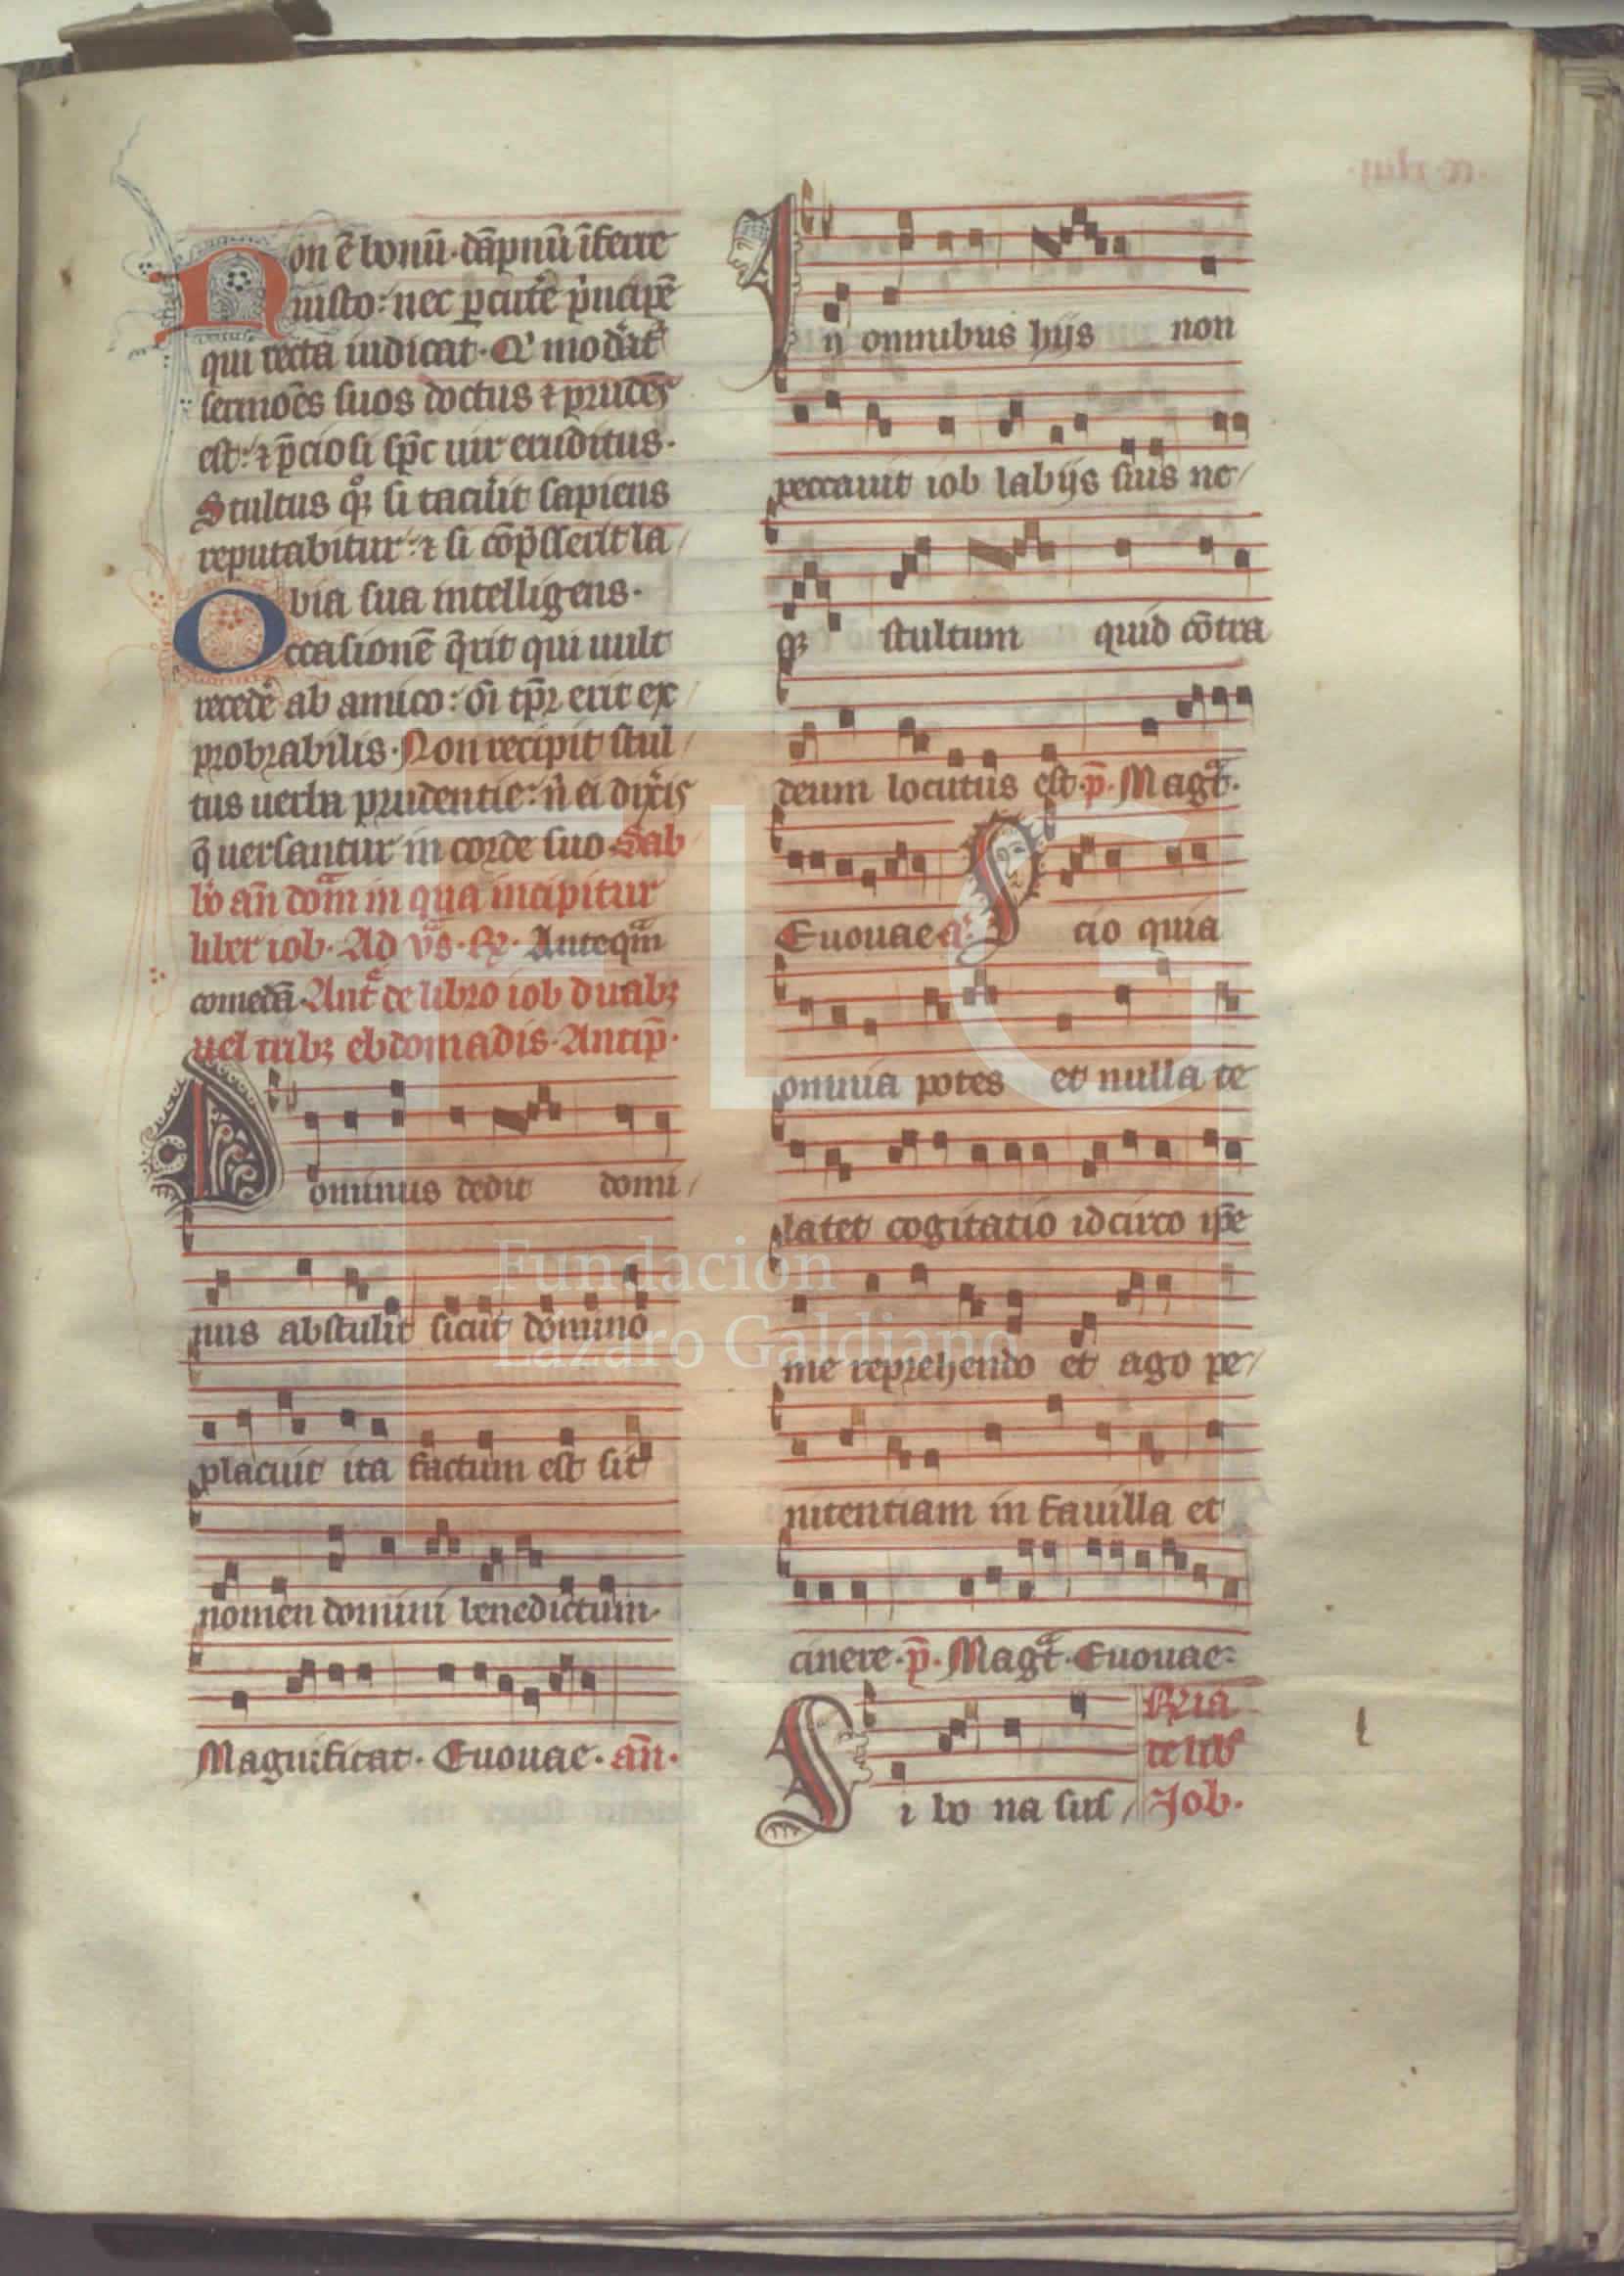 Non ē bonū. dāpnū īferre
iusto: nec ꝑcutē pͥncipē
qui recta iudicat. Qͥ modāt᷑
sermōes suos doctus ⁊ prudēs
est: ⁊ p̄ciosi sp̄c uir eruditus.
Stultus qͦꝫ si tacuit sapiens
reputabitur: ⁊ si cōp̄sserit la/
bia sua intelligens.
Occasionē q̄rit qui uult
recedē ab amico: oī tp̄ꝛ erit ex/
probrabilis. Non recipit stul/
tus uerba prudentie: nͥ ei dixͥis
q̄ uersantur in corde suo. Sab
bͦ an̄ domͣ in qua incipitur
liber iob. Ad vͣs. ℟. Anteqͣm
comedā. Anͭ de libro iob duabꝫ
uel tribꝫ ebdomadis. Antip̄.
Dominus dedit domi/
nus abstulit sicut domino
placuit ita factum est sit
nomen domini benedictum.
Magnificat. Euouae. an̄.
In omnibus hijs non
peccauit iob labijs suis ne/
qꝫ stultum quid cōtra
deum locutus est. p̄. Magͭ.
Euouae a. Scio quia
omnia potes et nulla te
latet cogitatio idcirco ip̄e
me reprehendo et ago pe/
nitentiam in fauilla et
cinere. p̄. Magͭ. Euouae:
Si bo na sus/
℟ia
de libͦ
Job.
Fundación
Lázaro Galdiano
FLG